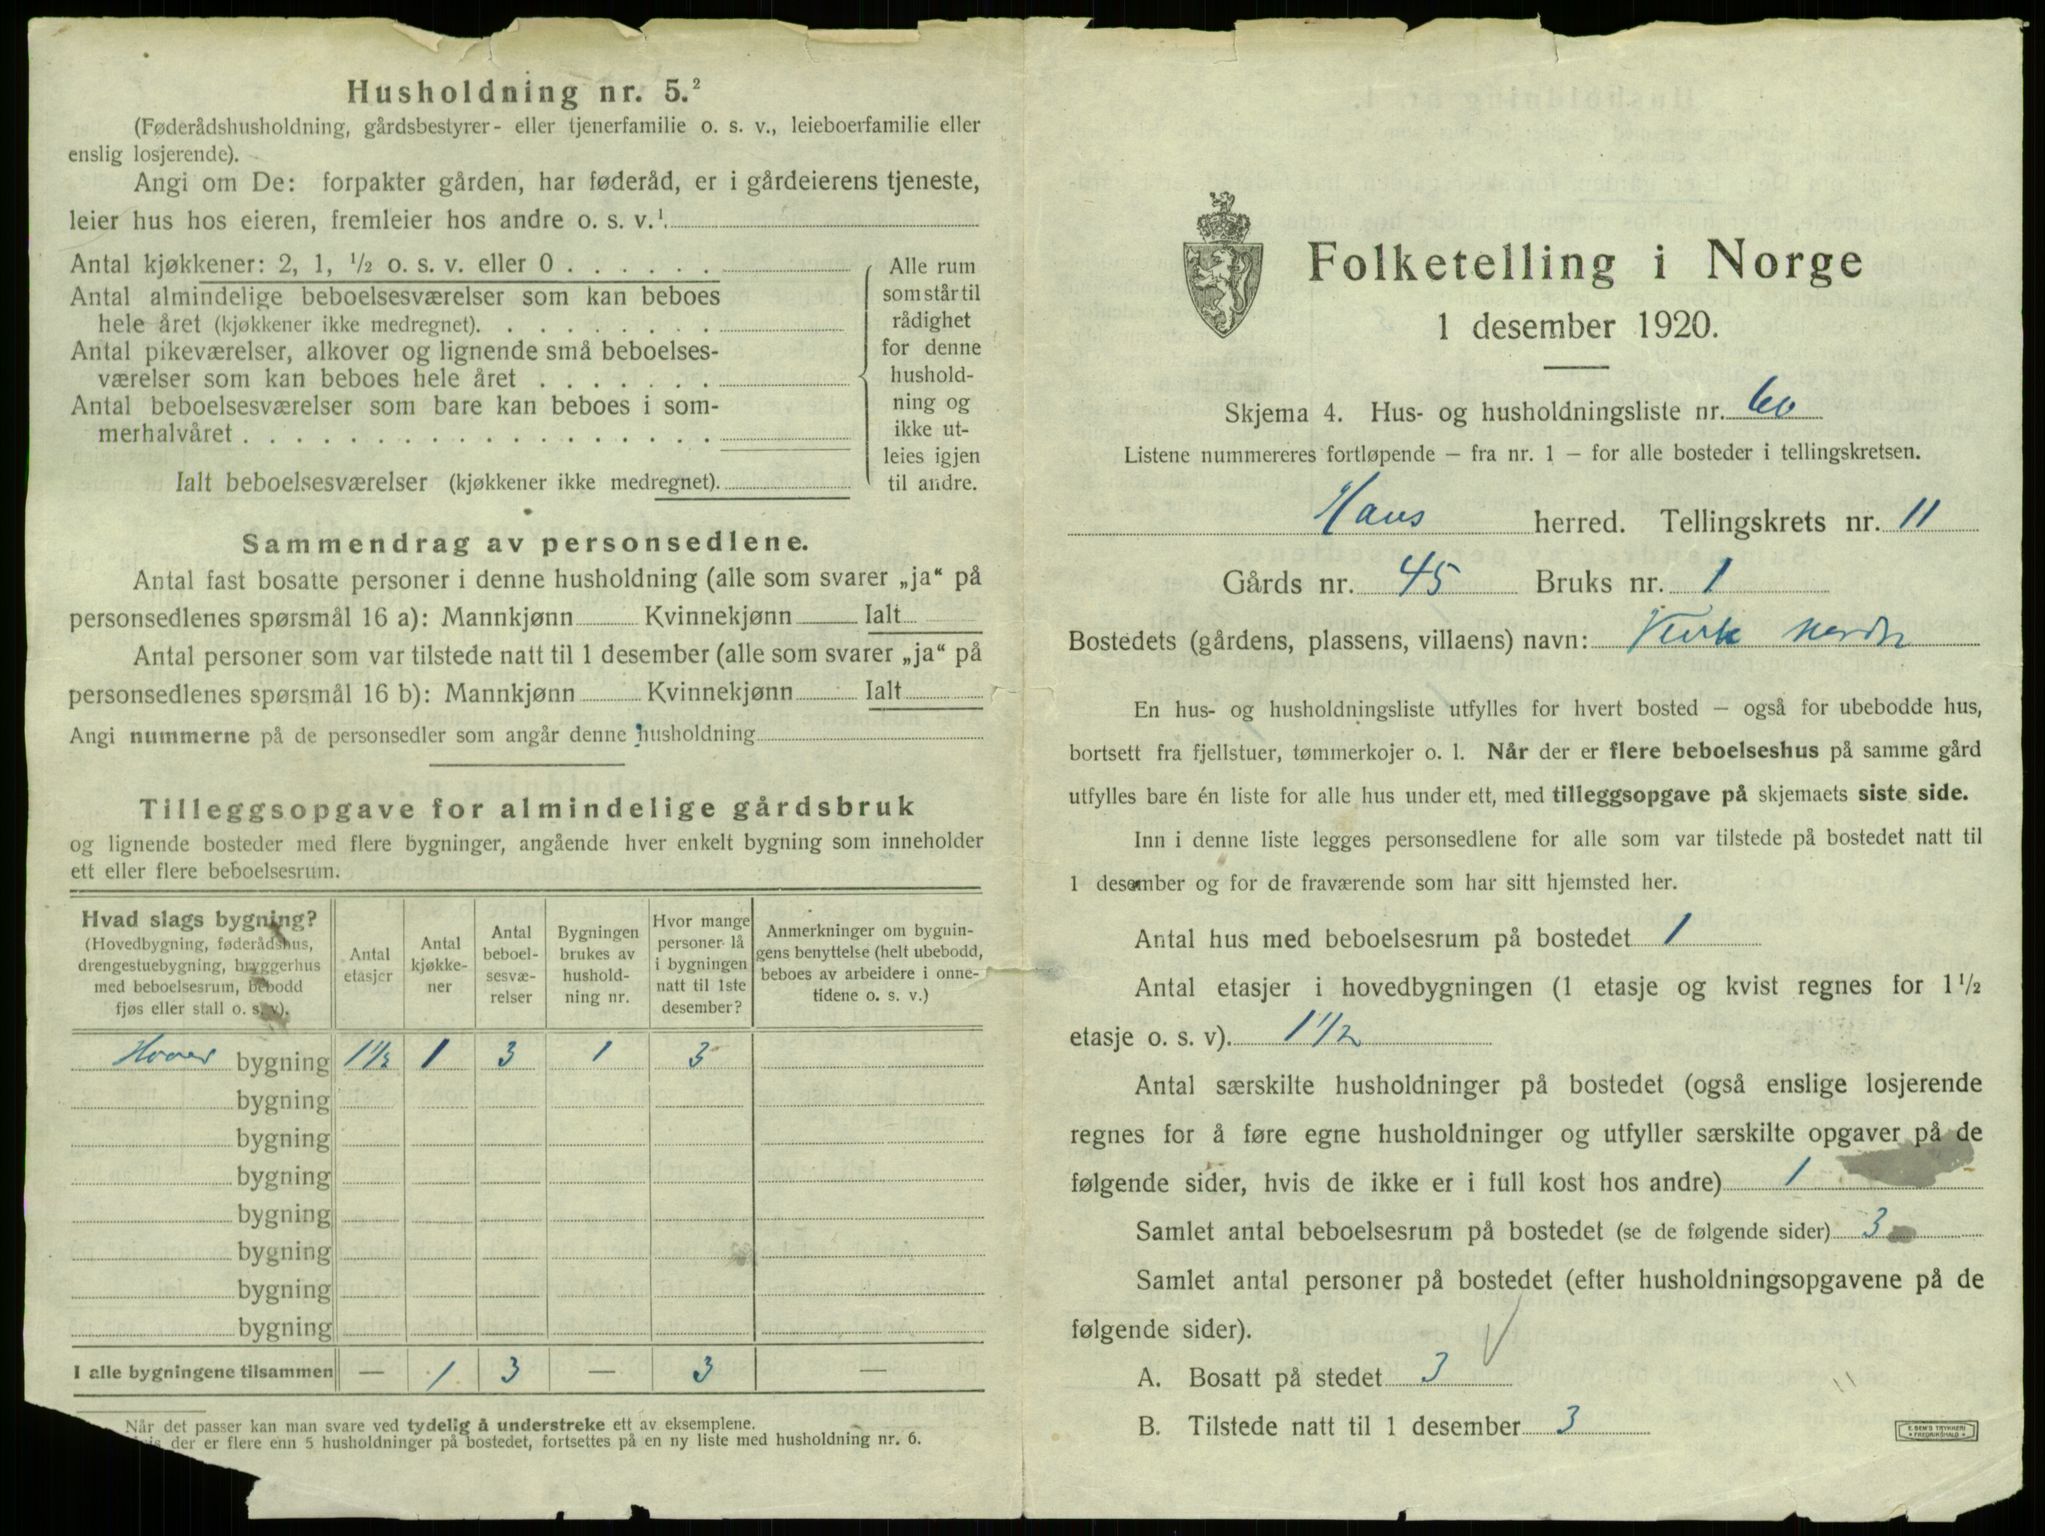 Husholdning nr. 5.²
(Føderådshusholdning, gårdsbestyrer- eller tjenerfamilie o. s. v., leieboerfamilie eller
enslig losjerende).
Angi om De: forpakter gården, har føderåd, er i gårdeierens tjeneste,
leier hus hos eieren, fremleier hos andre o. s. v.¹
Antal kjøkkener: 2, 1, ½ o. s. v. eller 0
Antal almindelige beboelsesværelser som kan beboes
hele året (kjøkkener ikke medregnet).
Antal pikeværelser, alkover og lignende små beboelses-
værelser som kan beboes hele året
Antal beboelsesværelser som bare kan beboes i som-
merhalvåret
Ialt beboelsesværelser (kjøkkener ikke medregnet).
Alle rum
som står til
rådighet
for denne
hushold-
ning og
ikke ut-
leies igjen
til andre.
Sammendrag av personsedlene.
Antal fast bosatte personer i denne husholdning (alle som svarer „ja“ på
personsedlenes spørsmål 16 a): Mannkjønn Kvinnekjønn Ialt
Antal personer som var tilstede natt til 1 desember (alle som svarer „ja“ på
personsedlenes spørsmål 16 b): Mannkjønn Kvinnekjønn Ialt
Angi nummerne på de personsedler som angår denne husholdning
Tilleggsopgave for almindelige gårdsbruk
og lignende bosteder med flere bygninger, angående hver enkelt bygning som inneholder
ett eller flere beboelsesrum.
Hvad slags bygning?
(Hovedbygning, føderådshus,
drengestuebygning, bryggerhus
med beboelsesrum, bebodd
fjøs eller stall o. s. v).
Antal
etasjer
Antal
kjøkke-
ner
Antal
beboel-
sesvæ-
relser
Bygningen
brukes av
hushold-
ning nr.
Hvor mange
personer lå
i bygningen
natt til 1ste
desember?
Anmerkninger om bygnin-
gens benyttelse (helt ubebodd,
beboes av arbeidere i onne-
tidene o. s. v.)
bygning 1½ 1 3 1 3
bygning
bygning
bygning
bygning
bygning
bygning
bygning
I alle bygningene tilsammen — 1 3 — 3 —
Når det passer kan man svare ved tydelig å understreke ett av eksemplene.
der er flere enn 5 husholdninger på bostedet, fortsettes på en ny liste med husholdning nr. 6.
Folketelling i Norge
1 desember 1920.
Skjema 4. Hus- og husholdningsliste nr. 60
Listene nummereres fortløpende – fra nr. 1 – for alle bosteder i tellingskretsen.
Haus herred. Tellingskrets nr. 11
Gårds nr. 45 Bruks nr. 1
Bostedets (gårdens, plassens, villaens) navn:
En hus- og husholdningsliste utfylles for hvert bosted – også for ubebodde hus,
bortsett fra fjellstuer, tømmerkojer o. l. Når der er flere beboelseshus på samme gård
utfylles bare én liste for alle hus under ett, med tilleggsopgave på skjemaets siste side.
Inn i denne liste legges personsedlene for alle som var tilstede på bostedet natt til
1 desember og for de fraværende som har sitt hjemsted her.
Antal hus med beboelsesrum på bostedet 1
Antal etasjer i hovedbygningen (1 etasje og kvist regnes for 1½
etasje o. s. v). 1½
Antal særskilte husholdninger på bostedet (også enslige losjerende
regnes for å føre egne husholdninger og utfyller særskilte opgaver på de
følgende sider, hvis de ikke er i full kost hos andre) 1
Samlet antal beboelsesrum på bostedet (se de følgende sider) 3
Samlet antal personer på bostedet (efter husholdningsopgavene på de
følgende sider).
A. Bosatt på stedet 3
B. Tilstede natt til 1 desember 3
E. SEM'S TRYKKERI
FREDRIKSHALD